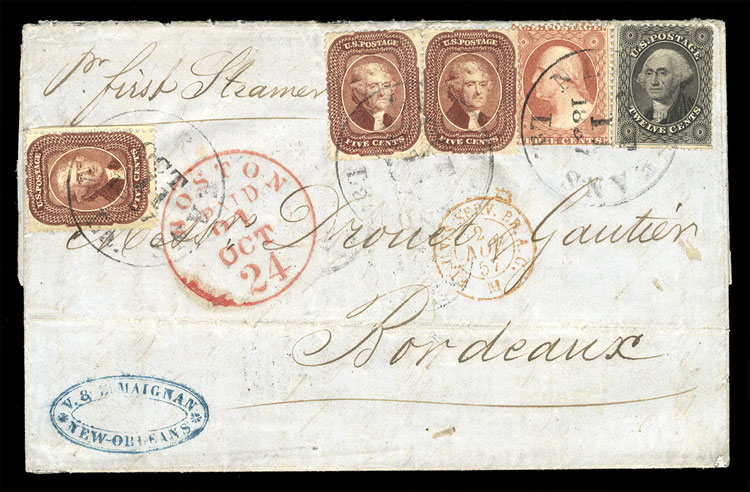 pr first Steamer
U.S. POSTAGE
FIVE CENTS
U.S. POSTAGE
FIVE CENTS
CENTS
U.S. POSTAGE
TWELVE CENTS
U.S. POSTAGE
FIVE CENTS
OCT
BOSTON
PAID
21
OCT
24
Drouet, Gautier
SERV. BR. A.C.
2
57
Bordeaux
V. & MAIGNAN
NEW-ORLEANS